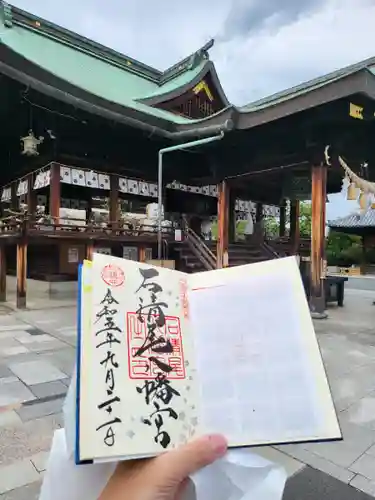 石清尾八幡宮
令和五年九月二十一日